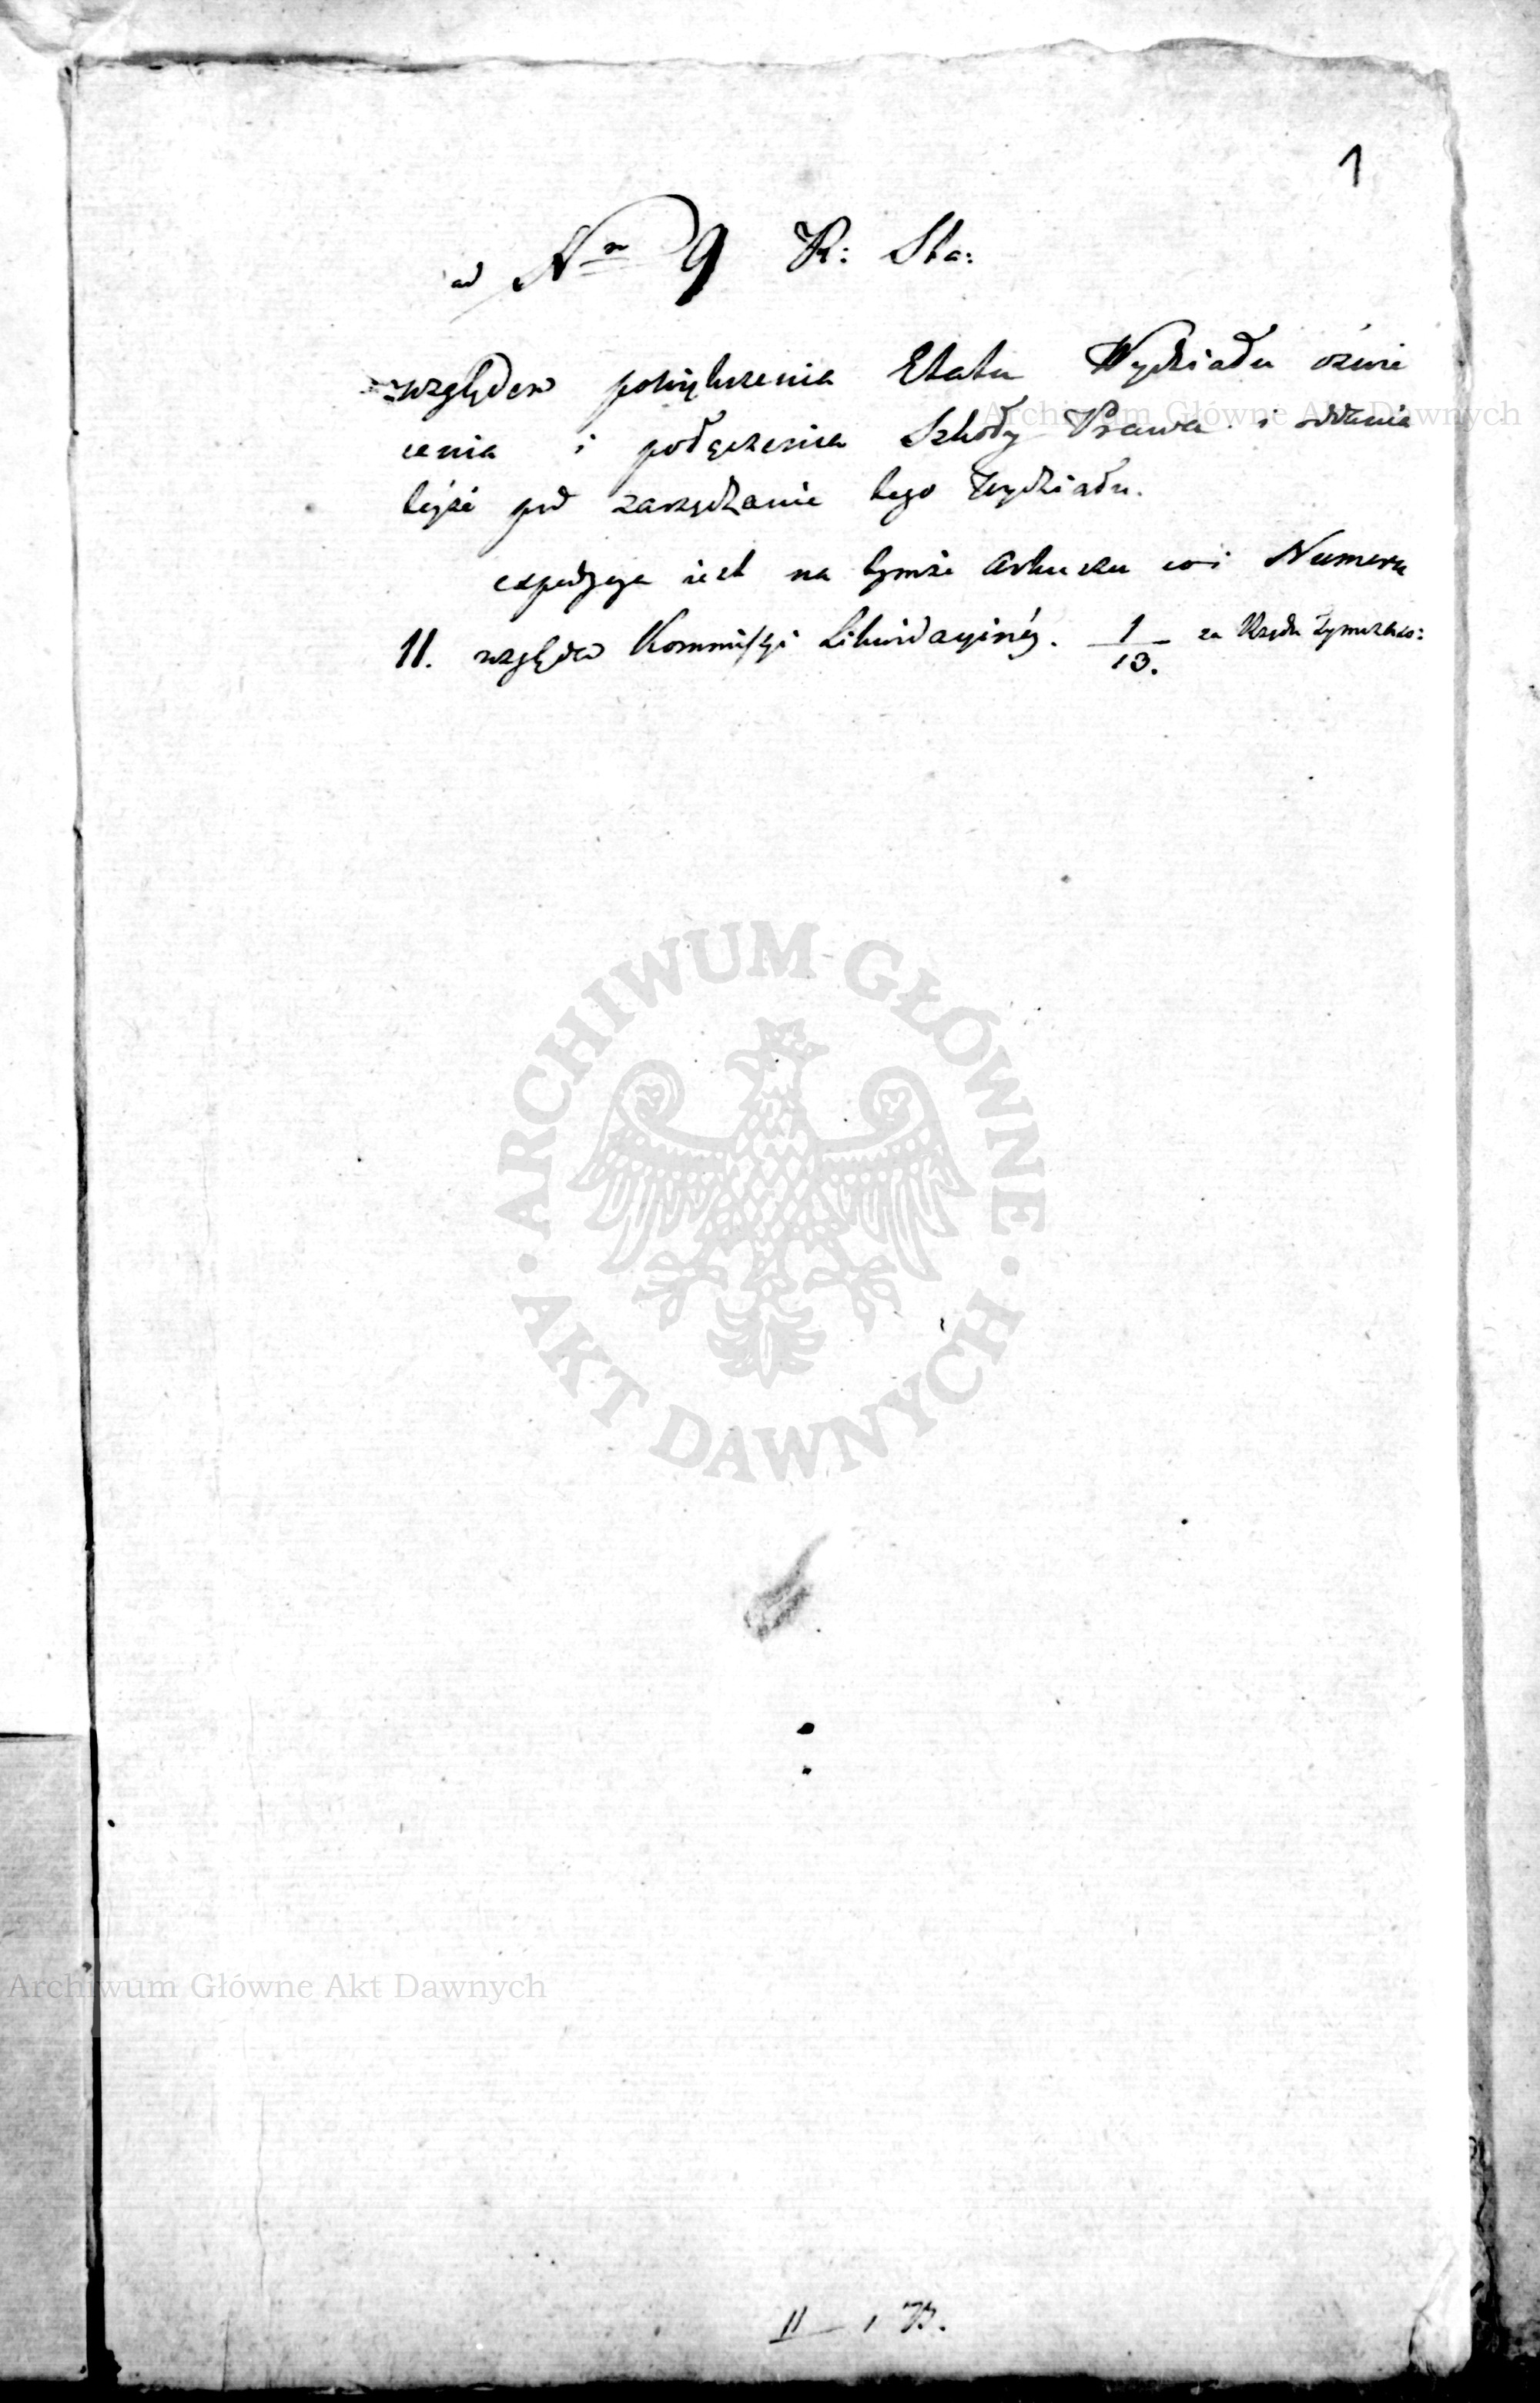 1
ad Nro 9 R: Sta:
względem powiększenia Etatu Wydziału oświe
cenia i połączenia Szkoły Prawa i oddania
teyże pod zarządzanie tego Wydziału.
expedycya iest na tymże arkuszu co i Numeru
11. względem Kommissyi Likwidacyinéy. 1/13. za Rządu Tymczaso:
Archiwum Główne Akt Dawnych
ARCHIWUM GŁÓWNE · AKT DAWNYCH ·
Archiwum Główne Akt Dawnych
II